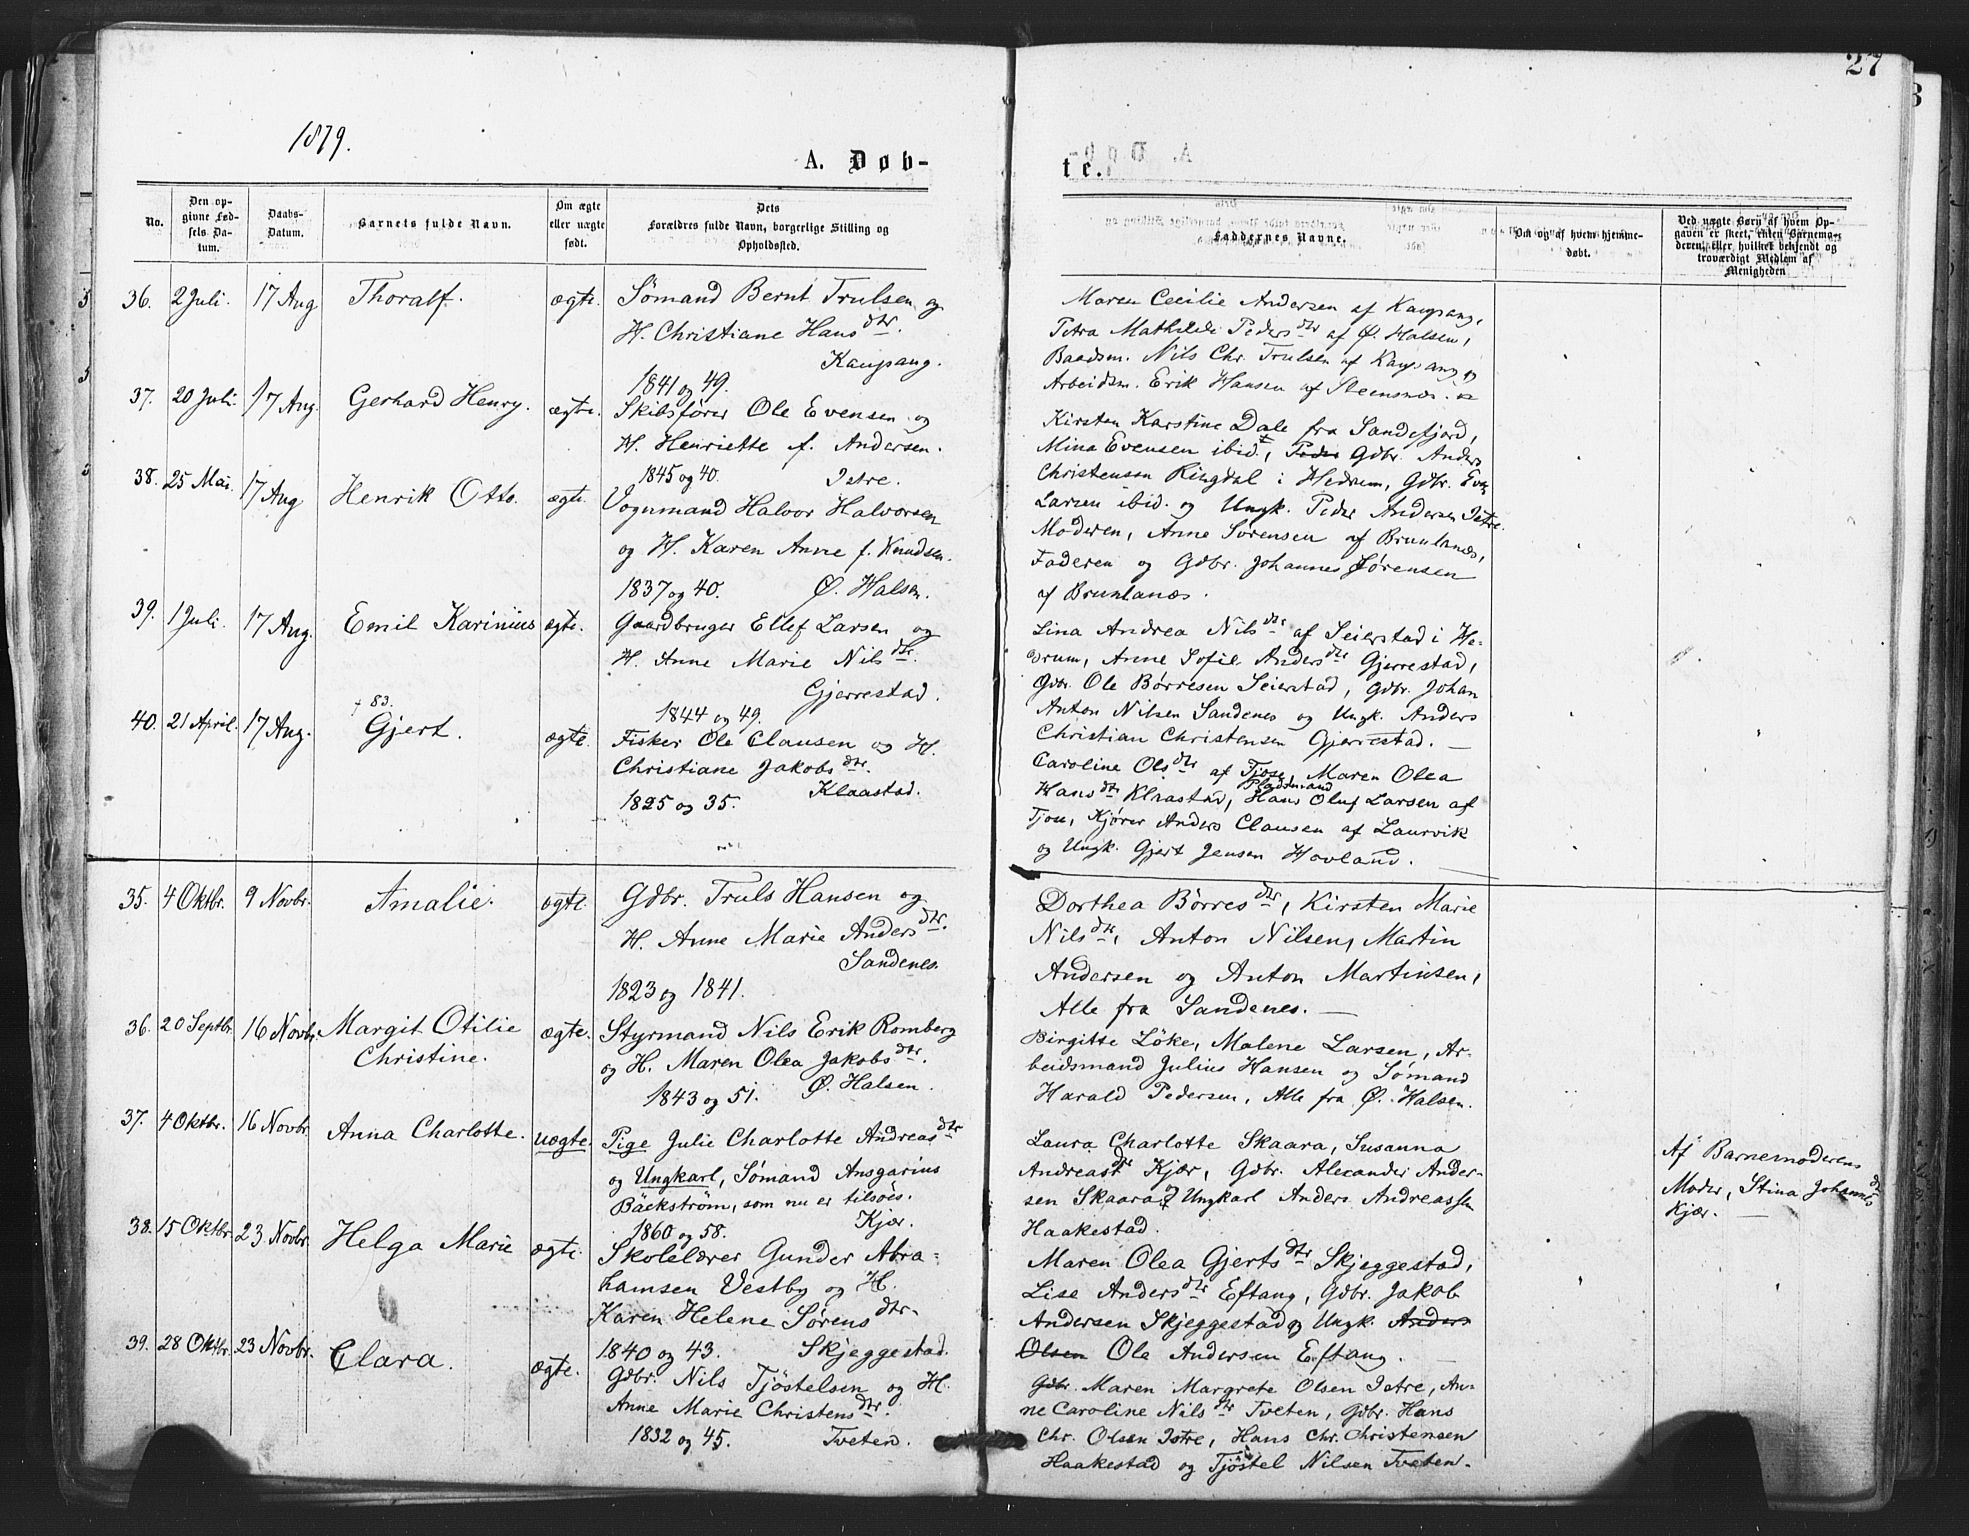 27
1879.
A. Døb-
te.
No.
Den op-
givne Fød-
sels Da-
tum.
Daabs-
Datum.
Barnets fulde Navn.
Om ægte
eller uægte
født.
Dets
Forældres fulde Navn, borgerlige Stilling og
Opholdssted.
Faddernes Navne.
Om og af hvem hjemme-
døbt.
Ved uægte Børn af hvem Op-
gaven er skeet, enten Barnemo-
deren, eller hvilket bekjendt og
troværdigt Medlem af
Menigheden
36. 2 Juli. 17 Aug Thoralf. ægte. Sømand Bernt Trulsen og
H. Christiane Hansdtr.
Kaupang.
1841 og 49.
Maren Cecilie Andersen af Kaupang,
Petra Mathilde Pedersdtr af Ø. Halsen,
Baadsm. Nils Chr. Trulsen af Kaupang og
Arbeidsm. Erik Hansen af Steensnæs.
37. 20 Juli. 17 Aug. Gerhard Henry. ægte. Skibsfører Ole Evensen og
H. Henriette f. Andersen.
1845 og 40. Istre.
Kirsten Karstine Dale fra Sandefjord,
Mina Evensen ibid., Peder Gdbr. Anders
Christensen Ringdal i Hedrum, Gdbr. Even
Larsen ibid. og Ungk. Peder Andersen Istre.
38. 25 Mai. 17 Aug Henrik Otto. ægte. Vognmand Halvor Halvorsen
og H. Karen Anne f. Knudsen.
1837 og 40. Ø. Halsen.
Moderen, Anne Sørensen af Brunlanæs,
Faderen og Gdbr. Johannes Sørensen
af Brunlanæs.
39. 1 Juli. 17 Aug. Emil Karinius ægte. Gaardbruger Ellef Larsen og
H. Anne Marie Nilsdtr.
Gjerrestad.
1844 og 49.
Lina Andrea Nilsdtr af Seierstad i He-
drum, Anne Sofie Andersdtr Gjerrestad,
Gdbr. Ole Børresen Seierstad, Gdbr. Johan
Anton Nilsen Sandenes og Ungk. Anders
Christian Christensen Gjerrestad.
40. 21 April. 17 Aug. † 83.
Gjert. ægte. Fisker Ole Clausen og H.
Christiane Jakobsdtr.
Klaastad.
1825 og 35.
Caroline Olsdtr af Tjose, Maren Olea
Hansdtr Klaastad, Pladsmand Hans Oluf Larsen af
Tjose, Kjører Anders Clausen af Laurvik
og Ungk. Gjert Jensen Hovland.
35. 4 Oktbr. 9 Novbr. Amalie. ægte. Gdbr. Truls Hansen og
H. Anne Marie Andersdtr.
Sandenes.
1823 og 1841.
Dorthea Børresdtr, Kirsten Marie
Nilsdtr, Anton Nilsen, Martin
Andersen og Anton Martinsen,
Alle fra Sandenes.
36. 20 Septbr. 16 Novbr. Margit Otilie
Christine. ægte. Styrmand Nils Erik Romberg
og H. Maren Olea Jakobsdtr.
1843 og 51. Ø. Halsen.
Birgitte Löke, Malene Larsen, Ar-
beidsmand Julius Hansen og Sømand
Harald Pedersen, Alle fra Ø. Halsen.
37. 4 Oktbr. 16 Novbr. Anna Charlotte. uægte. Pige Julie Charlotte Andreasdtr
og Ungkarl, Sømand Ansgarius
Bäckström, som nu er tilsøes.
1860 og 58. Kjær.
Laura Charlotte Skaara, Susanna
Andreasdtr Kjær, Gdbr. Alexander Ander-
sen Skaara og Ungkarl Anders Andreassen
Haakestad.
Af Barnemoderens
Moder, Stina Johannesdtr
Kjær.
38. 15 Oktbr. 23 Novbr. Helga Marie ægte. Skolelærer Gunder Abra-
hamsen Vestby og H.
Karen Helene Sørensdtr.
1840 og 43. Skjeggestad.
Maren Olea Gjertsdtr Skjeggestad,
Lise Andersdtr Eftang, Gdbr. Jakob
Andersen Skjeggestad og Ungk. Anders
Olsen Ole Andersen Eftang.
39. 28 Oktbr. 23 Novbr. Clara. ægte. Gdbr. Nils Tjöstelsen og H.
Anne Marie Christensdtr.
1832 og 45. Tveten.
Gdbr. Maren Margrete Olsen Istre, An-
ne Caroline Nilsdtr Tveten, Gdbr. Hans
Chr. Olsen Istre, Hans Chr. Christensen
Haakestad og Tjöstel Nilsen Tveten.